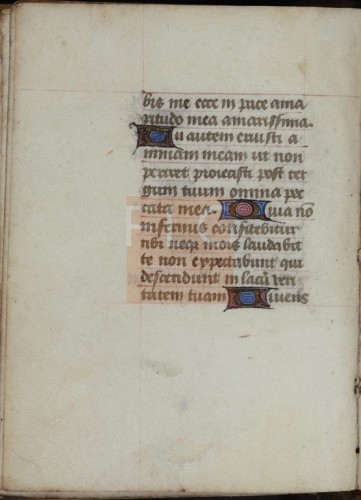 bis me ecce in pace ama
ritudo mea amarissima.
Tu autem eruisti a
nimam meam ut non
periret proiecisti post ter
gum tuum omnia pec
cata mea. Quia nō
infernus confitebitur
tibi neqꝫ mors laudabit
te non expectabunt qui
descendunt in lacū veri
tatem tuam Viuens